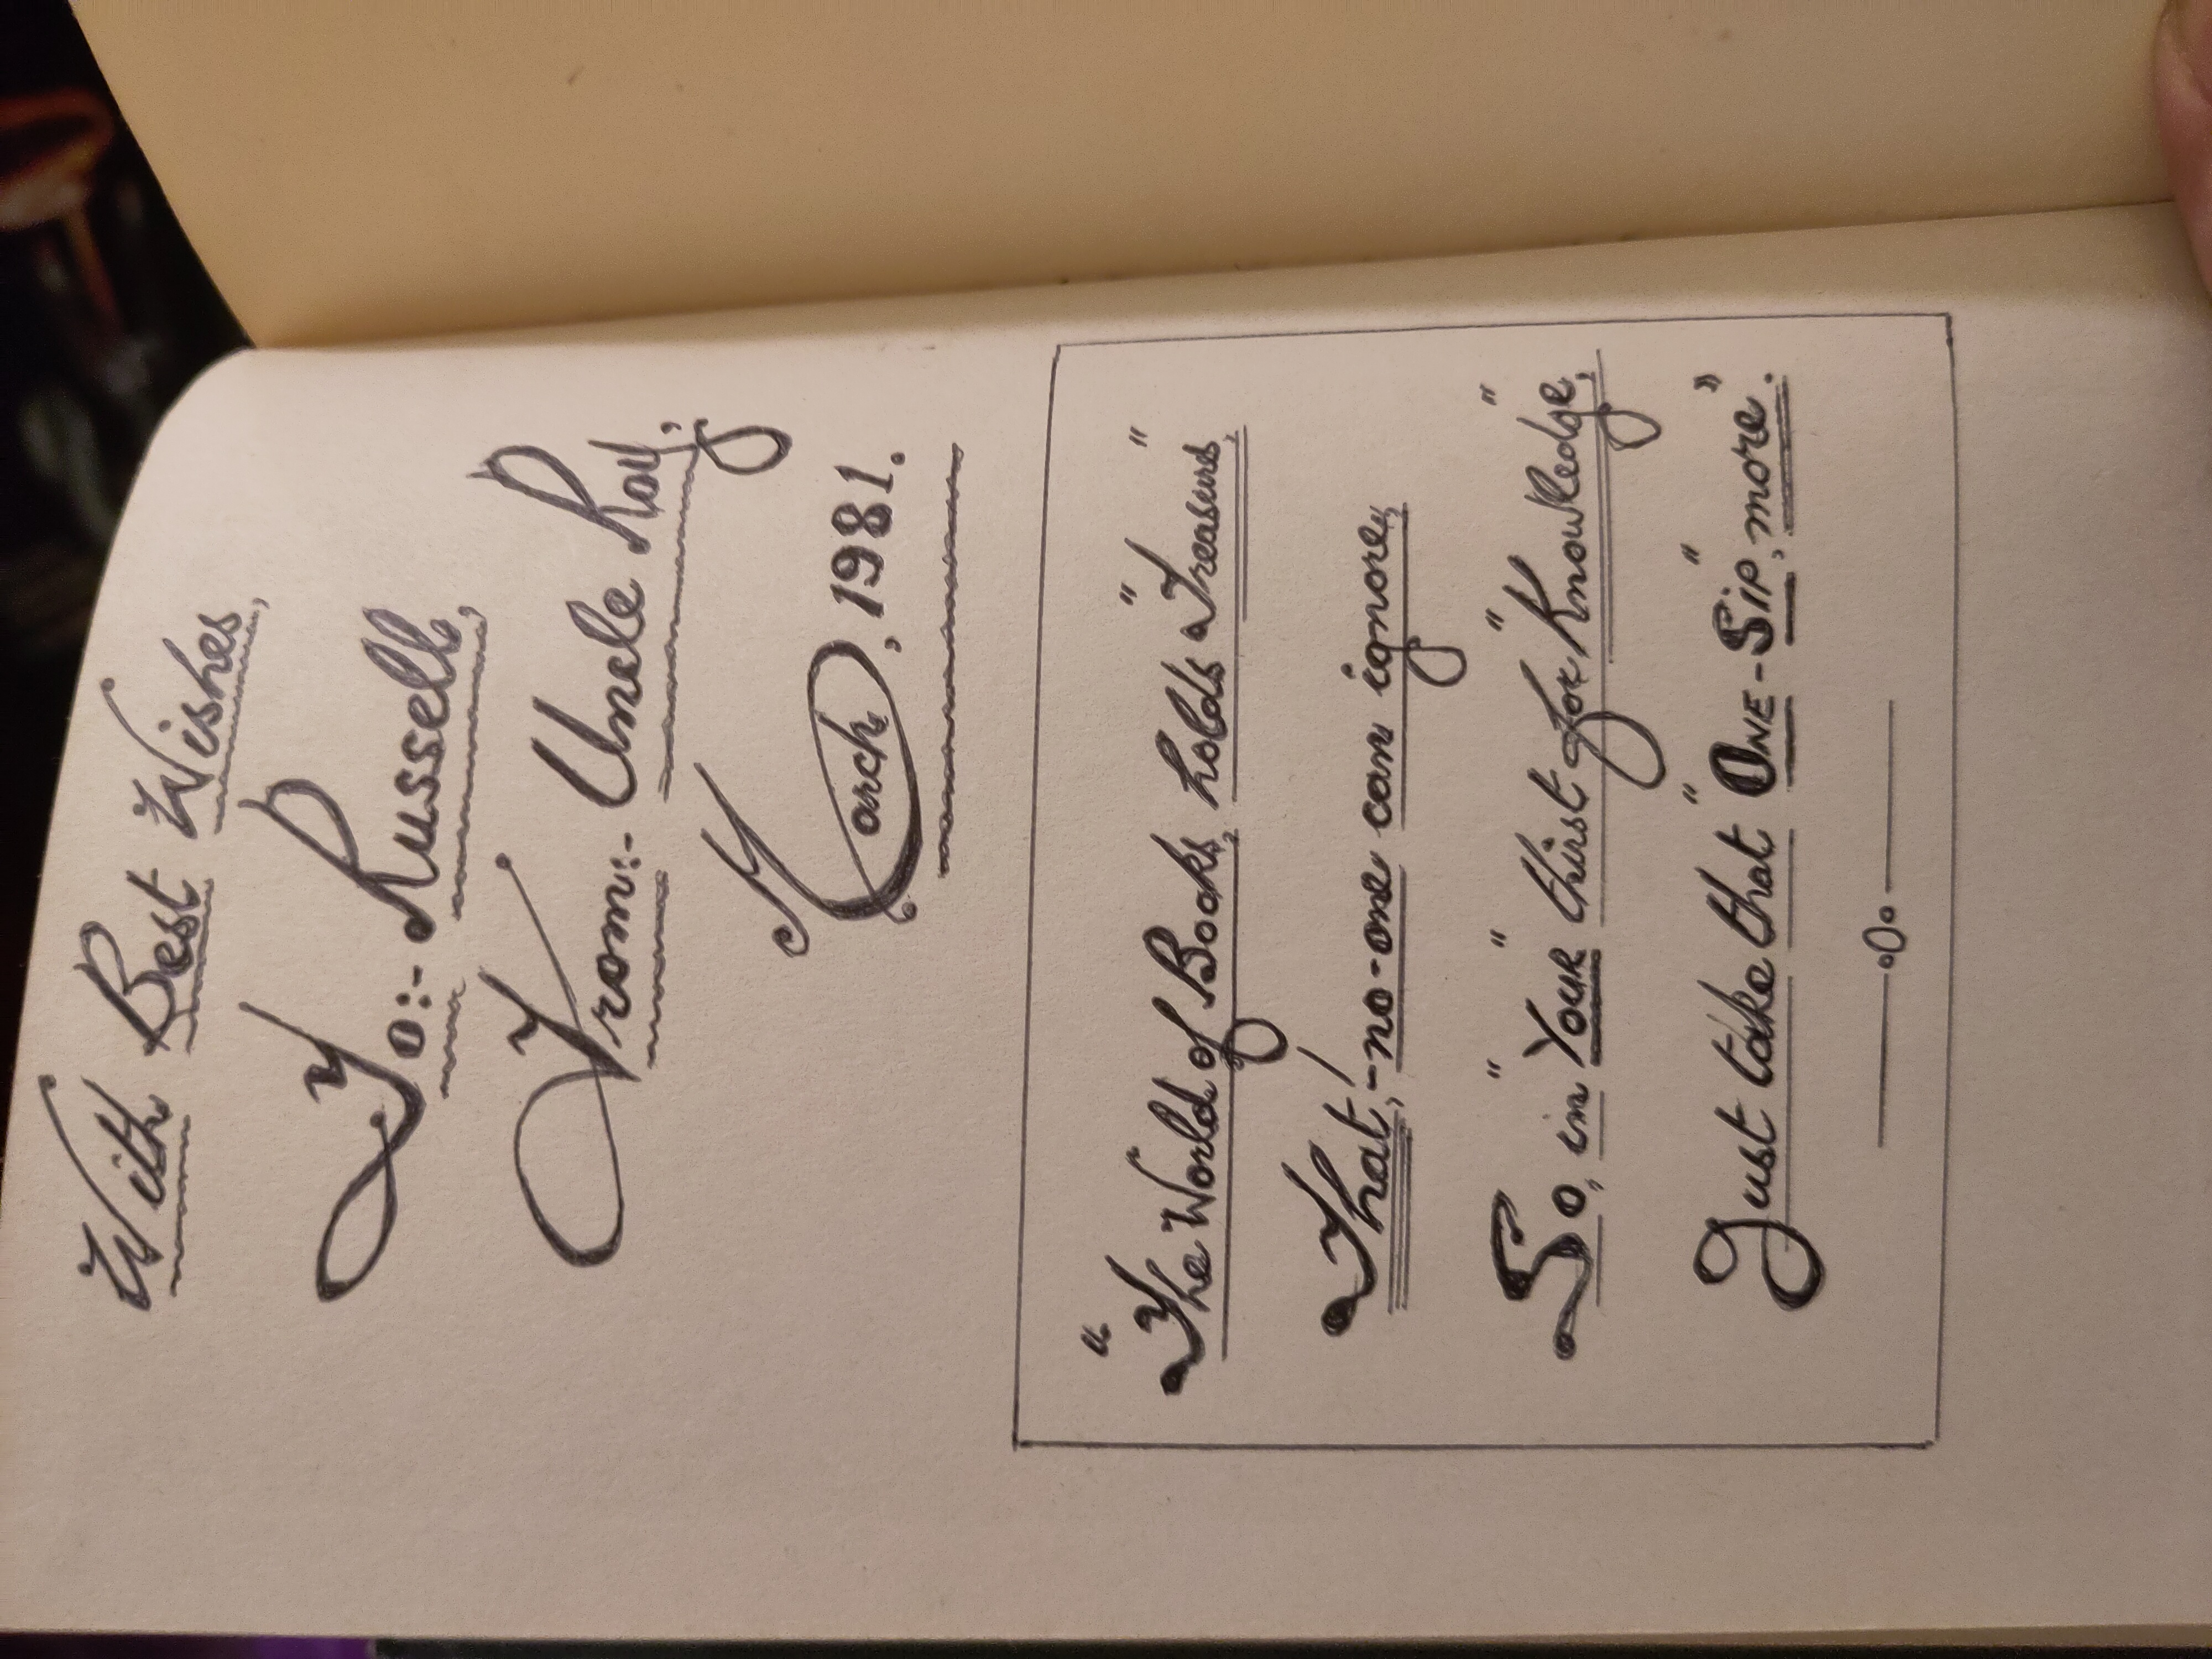 With Best Wishes,
To:- Russell,
From:- Uncle Roy,
March, 1981.
"The World of Books, holds "Treasures",
That;- no-one can ignore,
So, in "Your" thirst for "Knowledge",
Just take that "ONE-SIP", more".